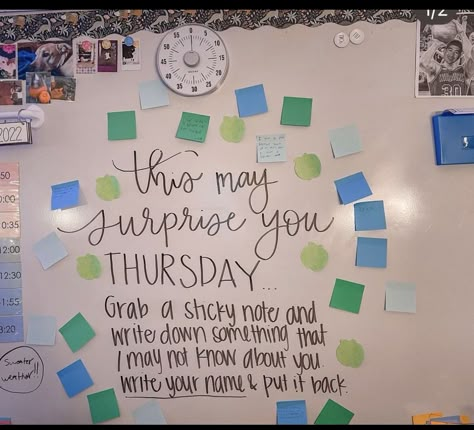 1/2
0 5 10 15 20 25 30 35 40 45 50 55
30
2022
this may
surprise you
THURSDAY...
Grab a sticky note and
write down something that
I may not know about you.
write your name & put it back.
:50
Sweater
weather!!